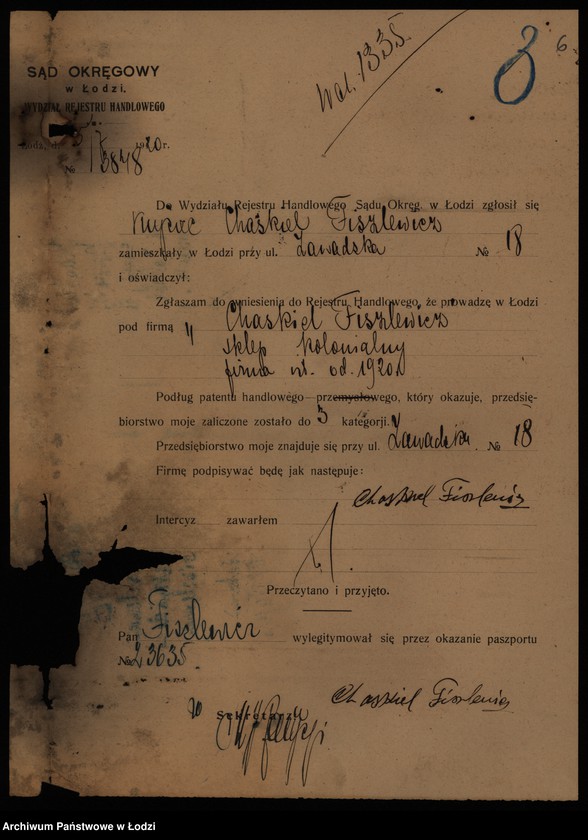 6.
3
Wol. 1335.
SĄD OKRĘGOWY
w Łodzi.
WYDZIAŁ REJESTRU HANDLOWEGO
1920 r.
№ 3848
Do Wydziału Rejestru Handlowego Sądu Okręg. w Łodzi zgłosił się
Kupiec Chaskiel Fiszlewicz
zamieszkały w Łodzi przy ul. Zawadzka № 18
i oświadczył:
Zgłaszam do wniesienia do Rejestru Handlowego, że prowadzę w Łodzi
pod firmą „ Chaskiel Fiszlewicz
sklep kolonialny
firma ist. od. 1920r.
Podług patentu handlowego przemysłowego, który okazuje, przedsię-
biorstwo moje zaliczone zostało do 3 kategorji.
Przedsiębiorstwo moje znajduje się przy ul. Zawadzka. № 18
Firmę podpisywać będę jak następuje:
Chaskiel Fiszlewicz
Intercyz zawarłem
Przeczytano i przyjęto.
Pan Fiszlewicz wylegitymował się przez okazanie paszportu
№ 23635
Chaskiel Fiszlewicz
Sekretarz
Archiwum Państwowe w Łodzi